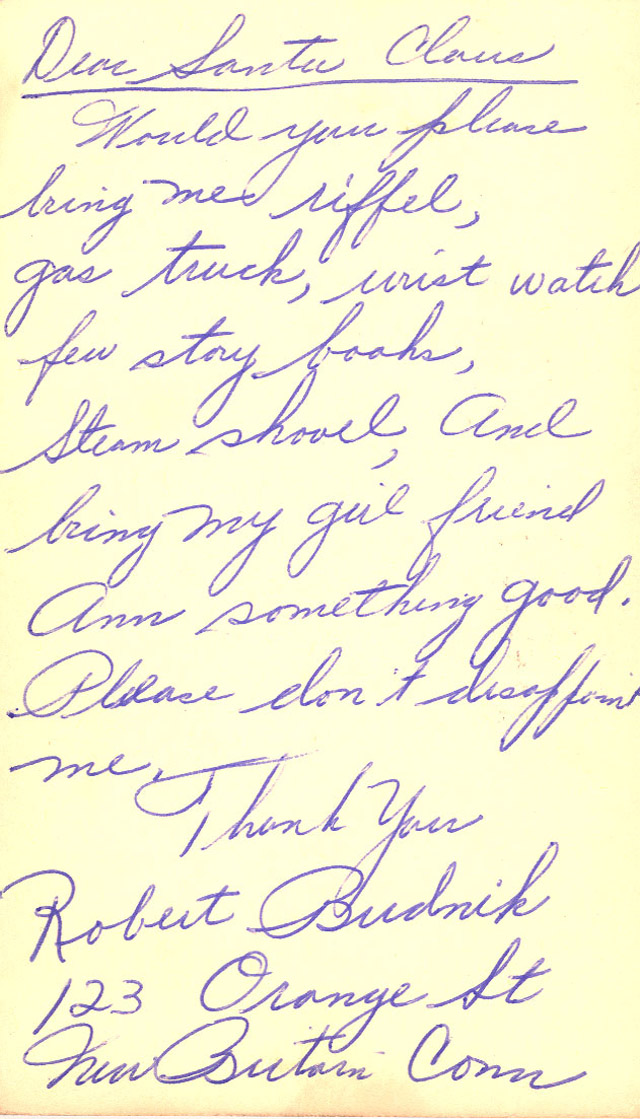 Dear Santa Claus
Would you please
bring me riffel,
gas truck, wrist watch
few story books,
Steam shovel, And
bring my girl friend
Ann something good.
Please don't disappoint
me.
Thank You
Robert Budnik
123 Orange St
New Britain Conn